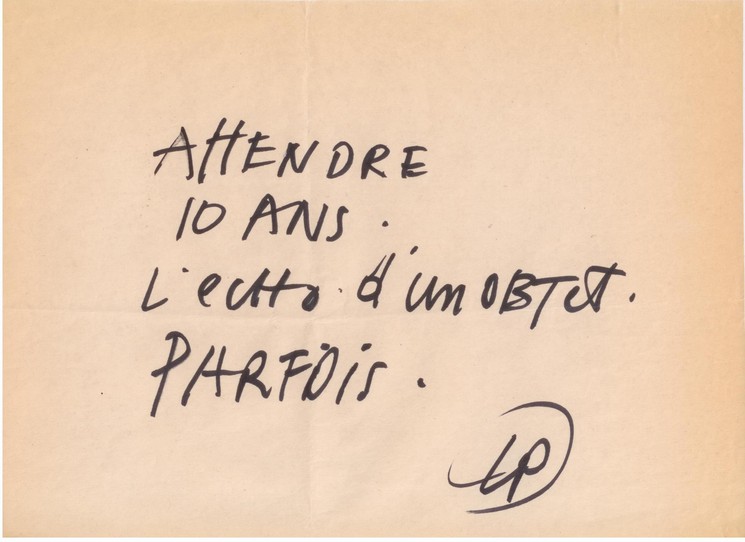 ATTENDRE
10 ANS.
L'ecHo. d'un OBJet.
PARFOiS.